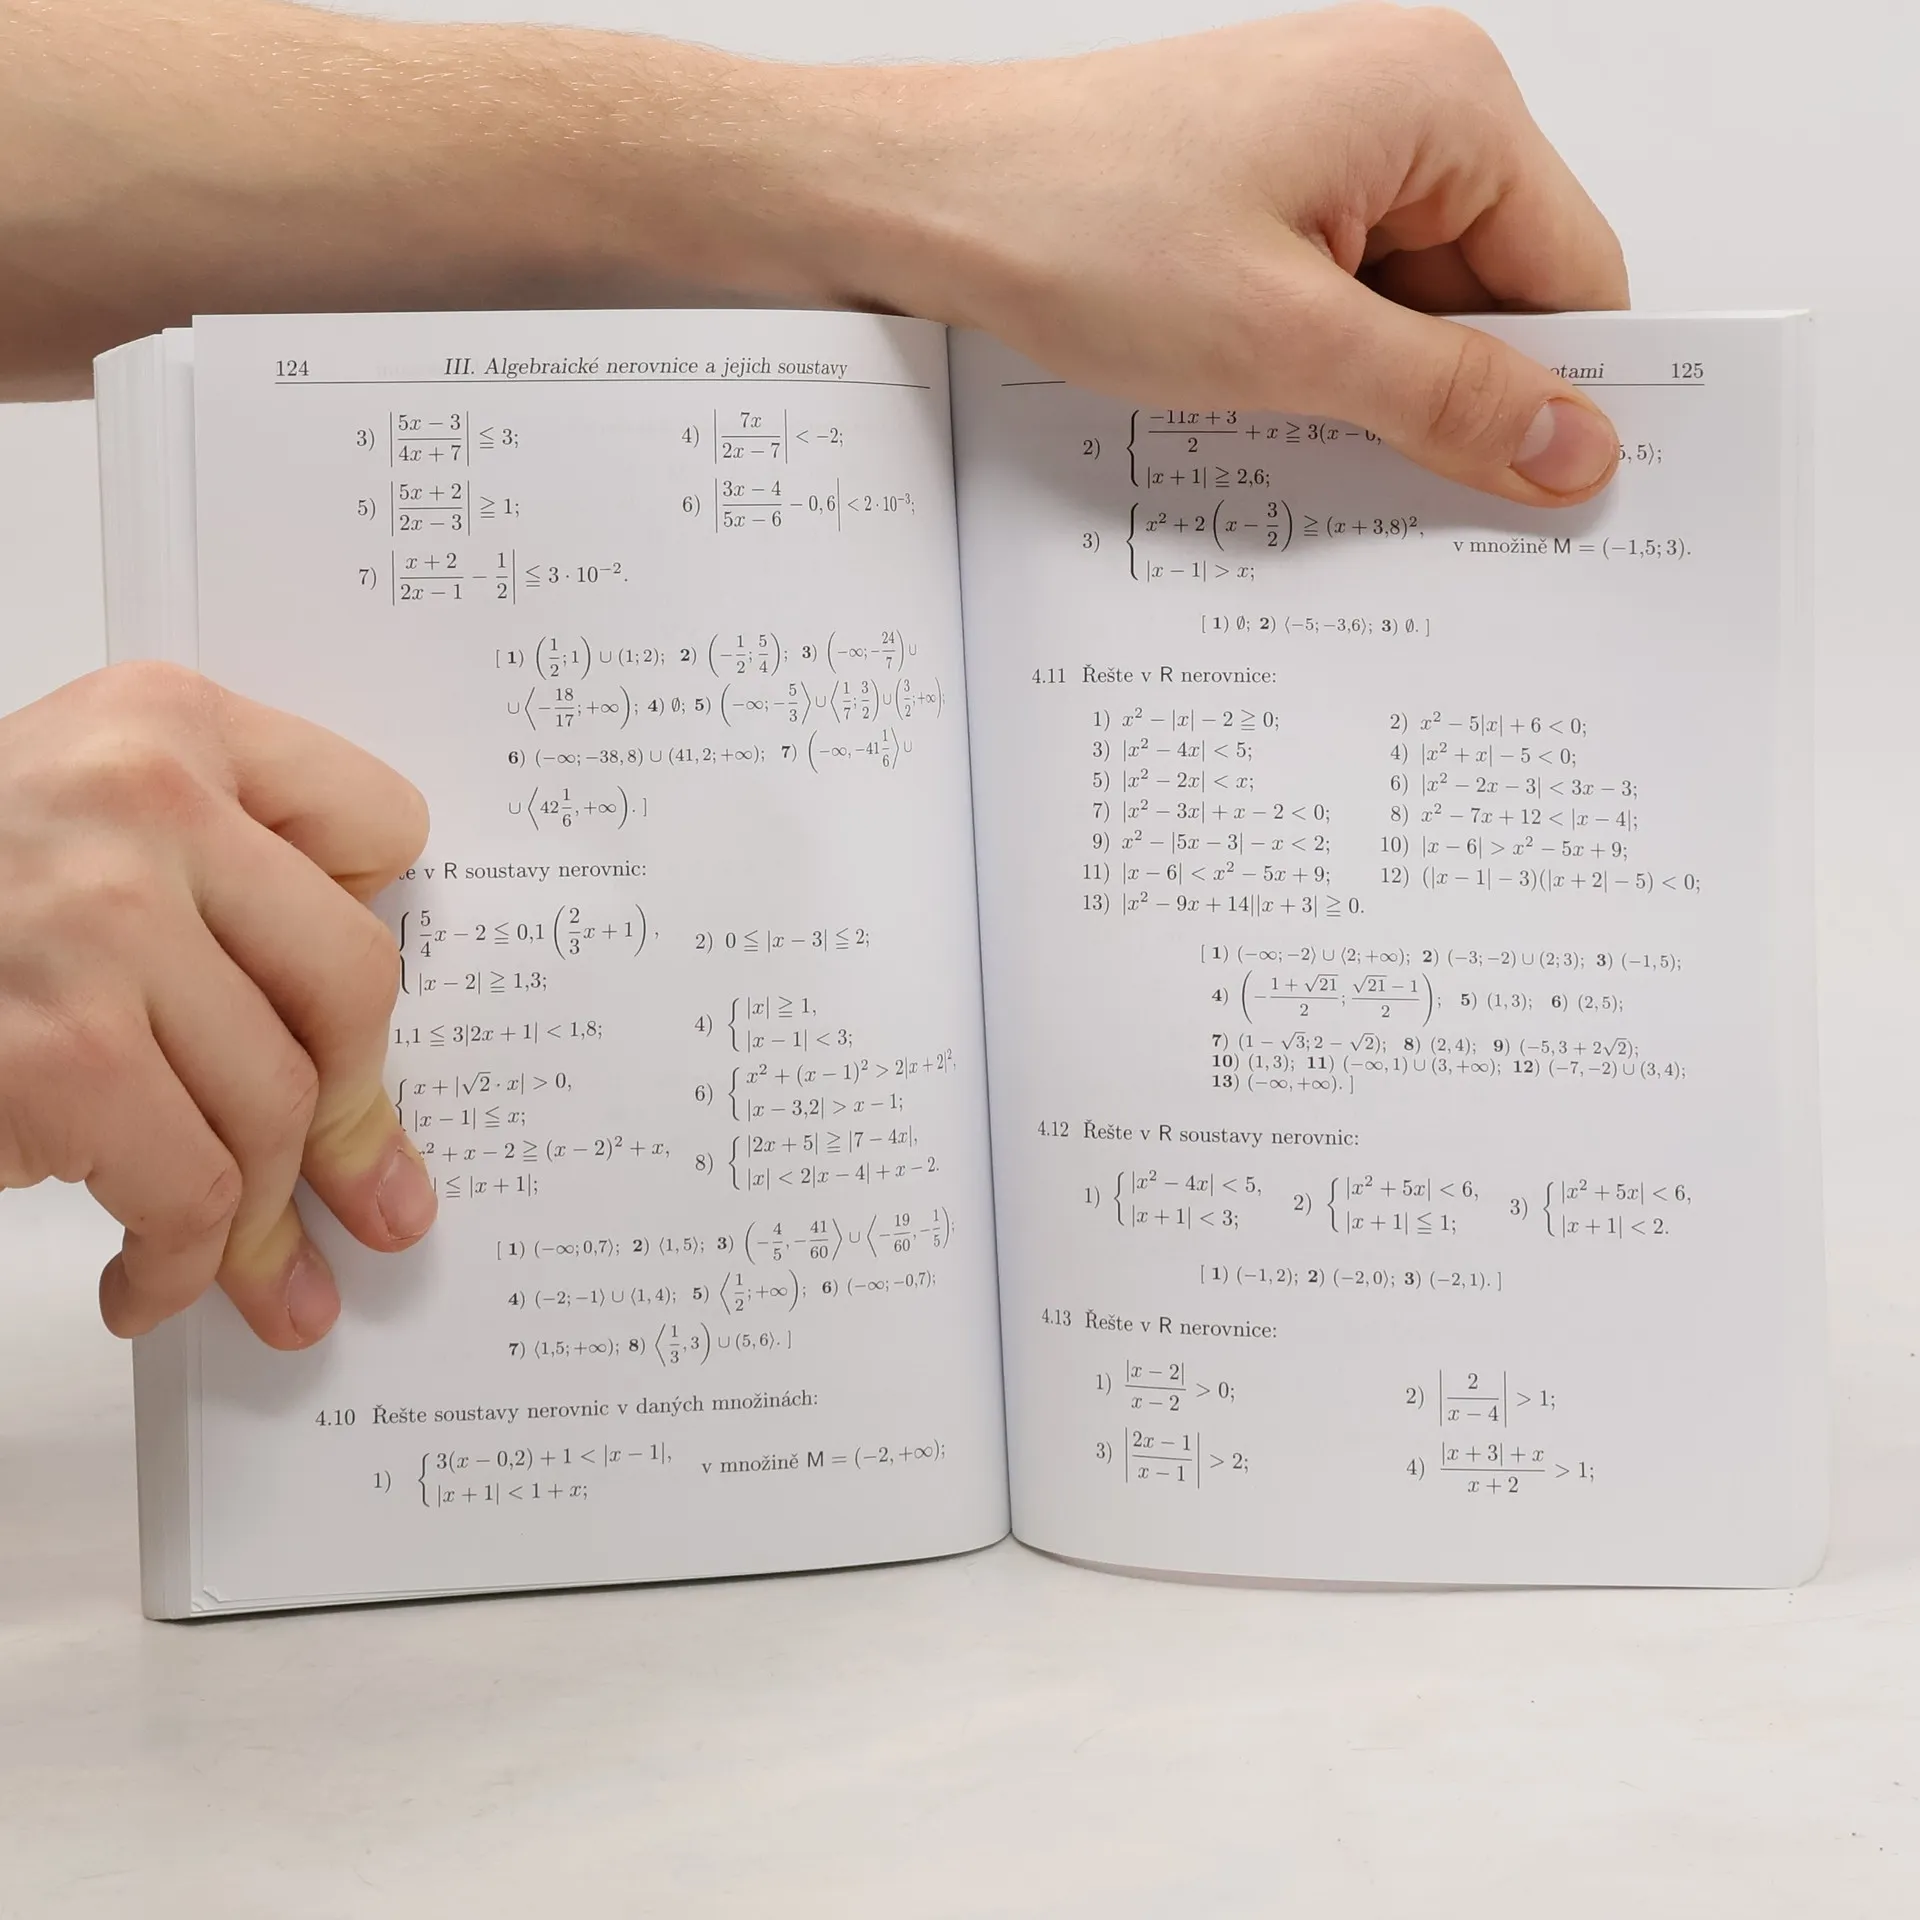 124 III. Algebraické nerovnice a jejich soustavy
3) |(5x − 3)/(4x + 7)| ≦ 3; 4) |7x/(2x − 7)| < −2;
5) |(5x + 2)/(2x − 3)| ≧ 1; 6) |(3x − 4)/(5x − 6) − 0,6| < 2 · 10⁻³;
7) |(x + 2)/(2x − 1) − 1/2| ≦ 3 · 10⁻².
[ 1) (1/2; 1) ∪ (1; 2); 2) (−1/2; 5/4); 3) (−∞; −24/7) ∪
∪ ⟨−18/17; +∞); 4) ∅; 5) (−∞; −5/3⟩ ∪ ⟨1/7; 3/2) ∪ (3/2; +∞);
6) (−∞; −38,8) ∪ (41,2; +∞); 7) (−∞, −41 1/6⟩ ∪
∪ ⟨42 1/6, +∞). ]
v R soustavy nerovnic:
5/4 x − 2 ≦ 0,1 (2/3 x + 1), 2) 0 ≦ |x − 3| ≦ 2;
|x − 2| ≧ 1,3;
1,1 ≦ 3|2x + 1| < 1,8; 4) |x| ≧ 1,
|x − 1| < 3;
x + |√2 · x| > 0, 6) x² + (x − 1)² > 2|x + 2|²,
|x − 1| ≦ x; |x − 3,2| > x − 1;
² + x − 2 ≧ (x − 2)² + x, 8) |2x + 5| ≧ |7 − 4x|,
| ≦ |x + 1|; |x| < 2|x − 4| + x − 2.
[ 1) (−∞; 0,7⟩; 2) ⟨1, 5⟩; 3) (−4/5, −41/60⟩ ∪ ⟨−19/60, −1/5);
4) (−2; −1⟩ ∪ ⟨1, 4); 5) ⟨1/2; +∞); 6) (−∞; −0,7);
7) ⟨1,5; +∞); 8) ⟨1/3, 3) ∪ (5, 6⟩. ]
4.10 Řešte soustavy nerovnic v daných množinách:
1) 3(x − 0,2) + 1 < |x − 1|, v množině M = (−2, +∞);
|x + 1| < 1 + x;
otami 125
2) (−11x + 3)/2 + x ≧ 3(x − 5, 5⟩;
|x + 1| ≧ 2,6;
3) x² + 2 (x − 3/2) ≧ (x + 3,8)², v množině M = (−1,5; 3).
|x − 1| > x;
[ 1) ∅; 2) ⟨−5; −3,6⟩; 3) ∅. ]
4.11 Řešte v R nerovnice:
1) x² − |x| − 2 ≧ 0; 2) x² − 5|x| + 6 < 0;
3) |x² − 4x| < 5; 4) |x² + x| − 5 < 0;
5) |x² − 2x| < x; 6) |x² − 2x − 3| < 3x − 3;
7) |x² − 3x| + x − 2 < 0; 8) x² − 7x + 12 < |x − 4|;
9) x² − |5x − 3| − x < 2; 10) |x − 6| > x² − 5x + 9;
11) |x − 6| < x² − 5x + 9; 12) (|x − 1| − 3)(|x + 2| − 5) < 0;
13) |x² − 9x + 14||x + 3| ≧ 0.
[ 1) (−∞; −2⟩ ∪ ⟨2; +∞); 2) (−3; −2) ∪ (2; 3); 3) (−1, 5);
4) (−(1 + √21)/2; (√21 − 1)/2); 5) (1, 3); 6) (2, 5);
7) (1 − √3; 2 − √2); 8) (2, 4); 9) (−5, 3 + 2√2);
10) (1, 3); 11) (−∞, 1) ∪ (3, +∞); 12) (−7, −2) ∪ (3, 4);
13) (−∞, +∞). ]
4.12 Řešte v R soustavy nerovnic:
1) |x² − 4x| < 5, 2) |x² + 5x| < 6, 3) |x² + 5x| < 6,
|x + 1| < 3; |x + 1| ≦ 1; |x + 1| < 2.
[ 1) (−1, 2); 2) (−2, 0⟩; 3) (−2, 1). ]
4.13 Řešte v R nerovnice:
1) |x − 2|/(x − 2) > 0; 2) |2/(x − 4)| > 1;
3) |(2x − 1)/(x − 1)| > 2; 4) (|x + 3| + x)/(x + 2) > 1;